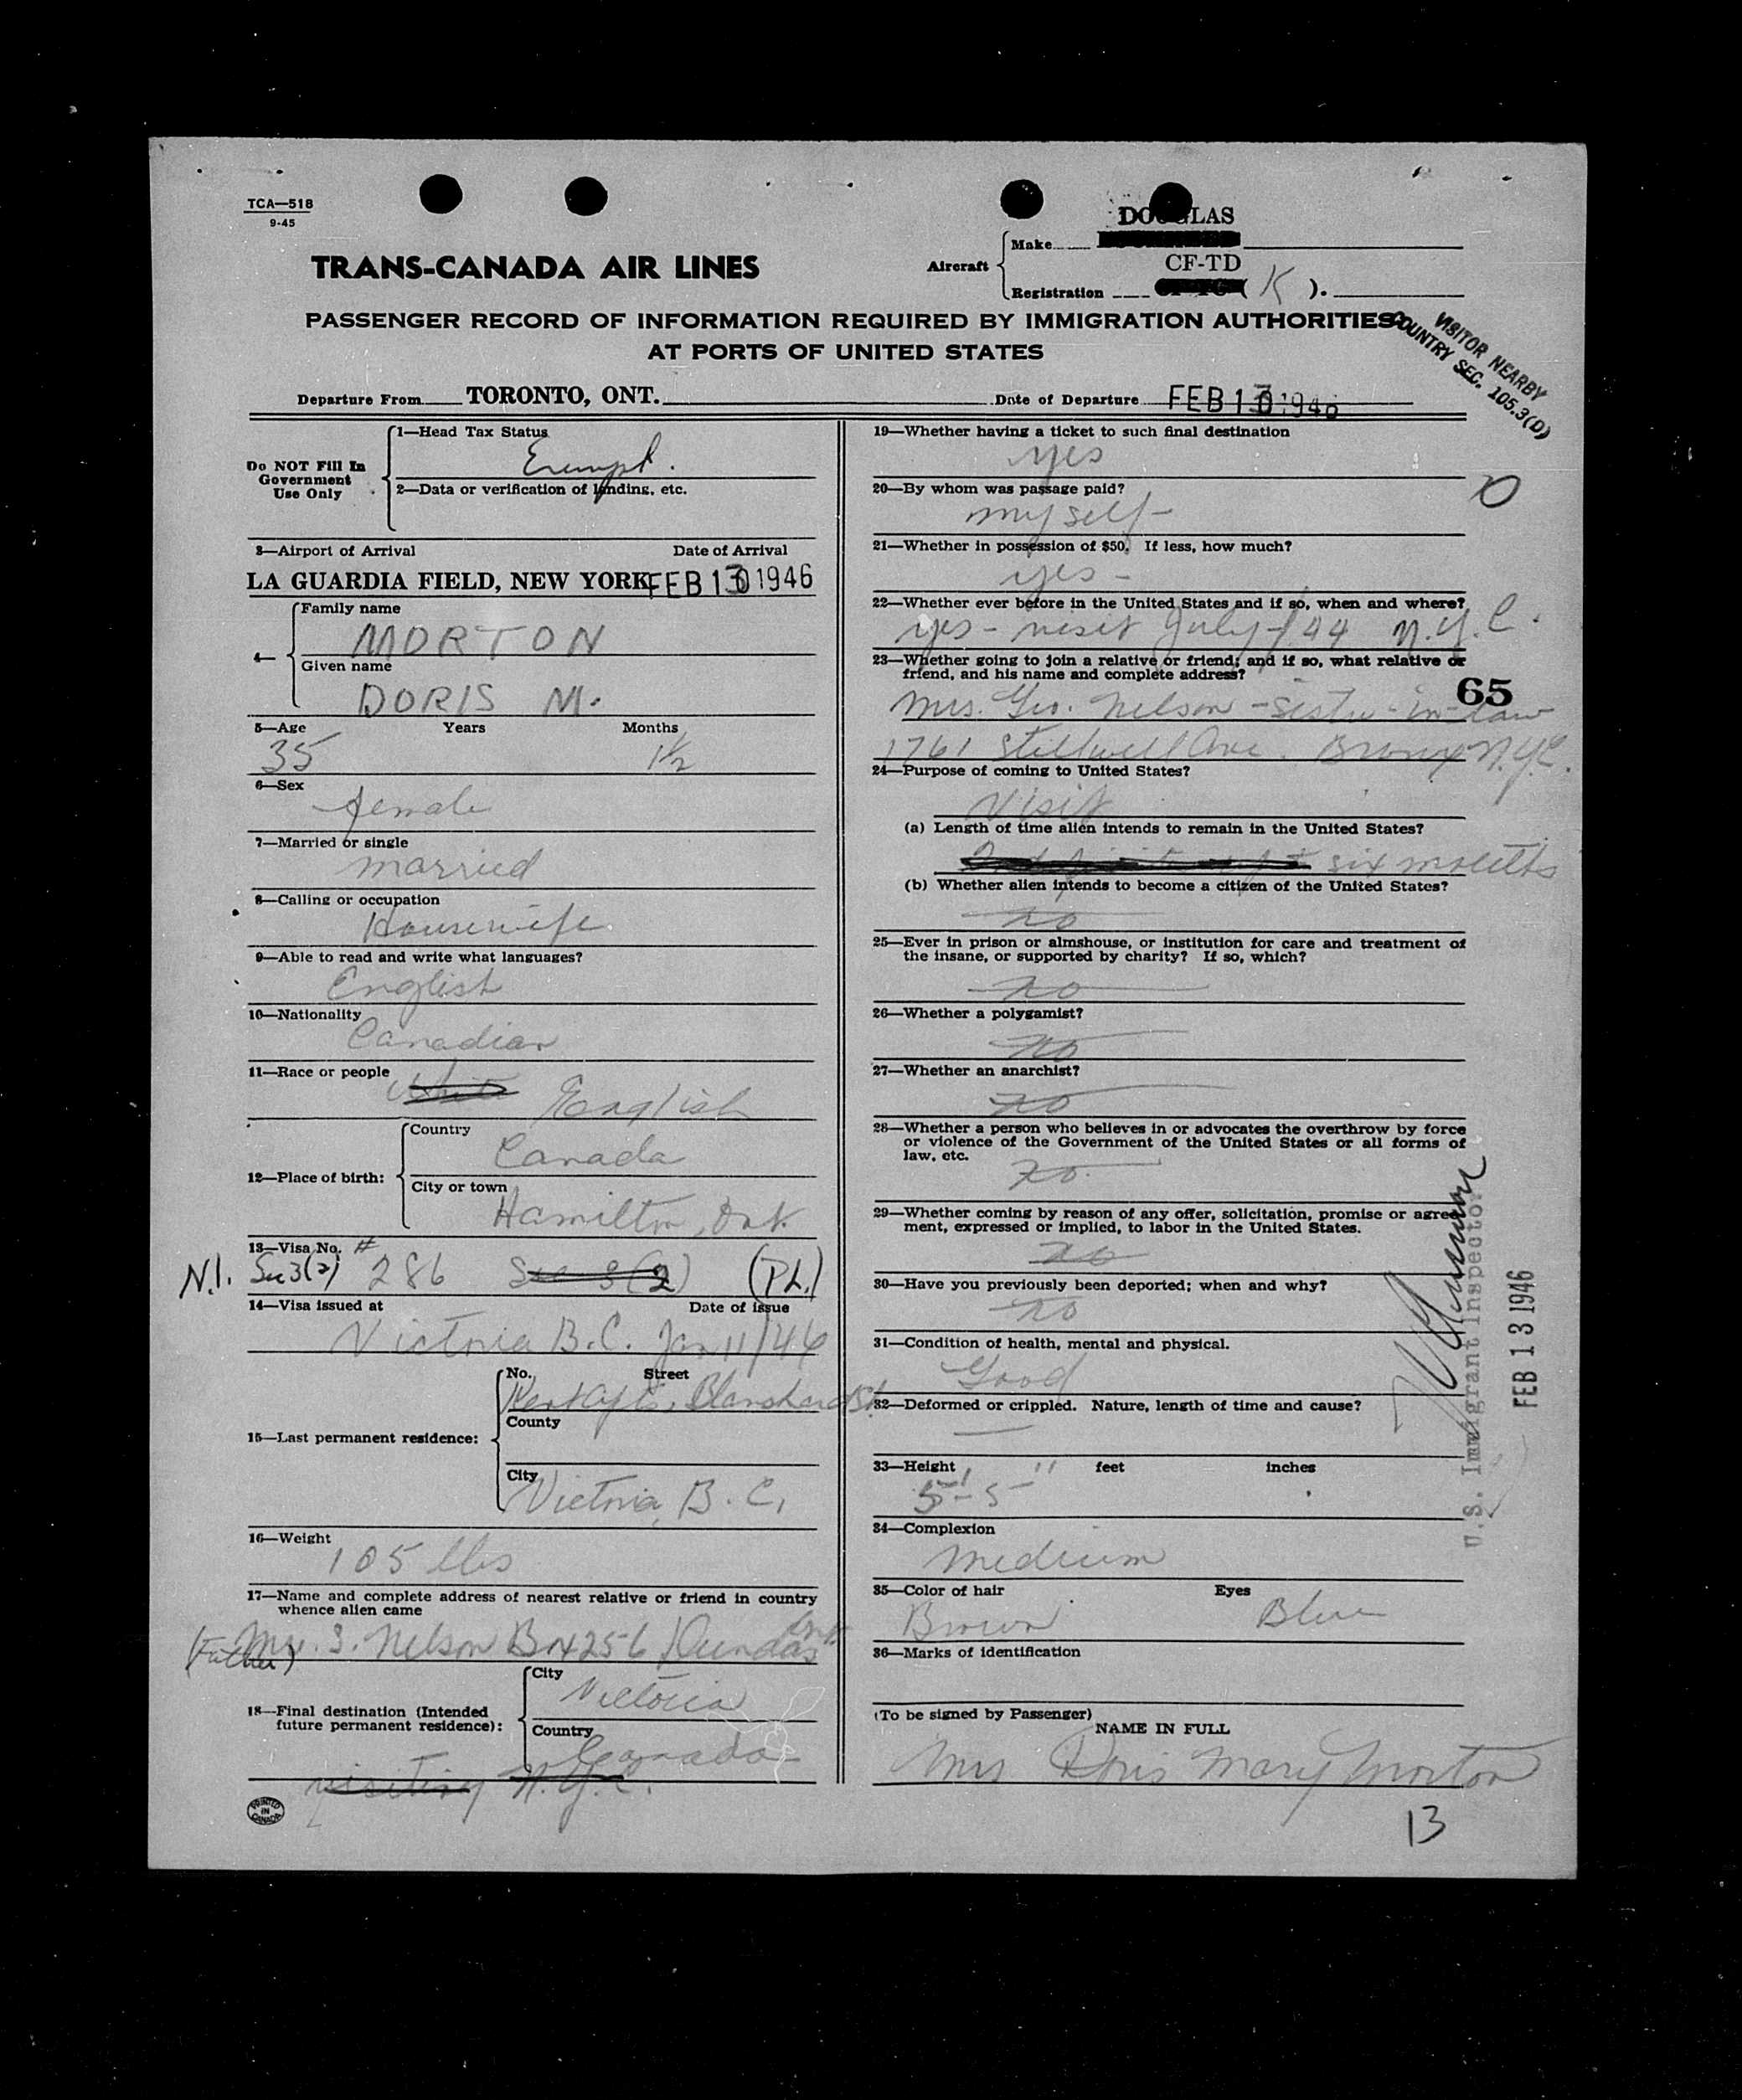 TCA—518
9-45
DOUGLAS
Make
TRANS-CANADA AIR LINES
Aircraft
CF-TD
Registration ( K ).
PASSENGER RECORD OF INFORMATION REQUIRED BY IMMIGRATION AUTHORITIES
AT PORTS OF UNITED STATES
VISITOR NEARBY
COUNTRY SEC. 105.3(D)
Departure From TORONTO, ONT. Date of Departure FEB 13 1946
Do NOT Fill In
Government
Use Only
1—Head Tax Status
Exempt.
2—Data or verification of landing, etc.
3—Airport of Arrival Date of Arrival
LA GUARDIA FIELD, NEW YORK FEB 13 1946
4—
Family name
MORTON
Given name
DORIS M.
5—Age Years Months
35 1½
6—Sex
female
7—Married or single
married
8—Calling or occupation
Housewife
9—Able to read and write what languages?
English
10—Nationality
Canadian
11—Race or people
White English
12—Place of birth:
Country
Canada
City or town
Hamilton, Ont.
13—Visa No. #
N.I. Sec 3(2) 286 Sec 3(2) (P.L.)
14—Visa issued at Date of issue
Victoria B.C. Jan 11/46
15—Last permanent residence:
No. Street
Blanshard St.
County
City
Victoria, B.C.
16—Weight
105 lbs
17—Name and complete address of nearest relative or friend in country
whence alien came
Mr. S. Nelson Bx 256 Dundas Ont.
(Father)
18—Final destination (Intended
future permanent residence):
City
Victoria
Country
Canada
visiting N.Y.C.
PRINTED
IN
CANADA
19—Whether having a ticket to such final destination
yes
20—By whom was passage paid?
O
myself
21—Whether in possession of $50. If less, how much?
yes -
22—Whether ever before in the United States and if so, when and where?
yes - visit July /44 N.Y.C.
23—Whether going to join a relative or friend; and if so, what relative or
friend, and his name and complete address?
65
Mrs. Geo. Nelson - sister-in-law
1761 Stillwell Ave. Bronx N.Y.C.
24—Purpose of coming to United States?
Visit
(a) Length of time alien intends to remain in the United States?
six months
(b) Whether alien intends to become a citizen of the United States?
no
25—Ever in prison or almshouse, or institution for care and treatment of
the insane, or supported by charity? If so, which?
no
26—Whether a polygamist?
no
27—Whether an anarchist?
no
28—Whether a person who believes in or advocates the overthrow by force
or violence of the Government of the United States or all forms of
law, etc.
no.
29—Whether coming by reason of any offer, solicitation, promise or agree-
ment, expressed or implied, to labor in the United States.
no
30—Have you previously been deported; when and why?
no
31—Condition of health, mental and physical.
Good
32—Deformed or crippled. Nature, length of time and cause?
—
33—Height feet inches
5' - 5"
34—Complexion
medium
35—Color of hair Eyes
Brown Blue
36—Marks of identification
U.S. Immigrant Inspector
FEB 13 1946
(To be signed by Passenger)
NAME IN FULL
Mrs Doris Mary Morton
13